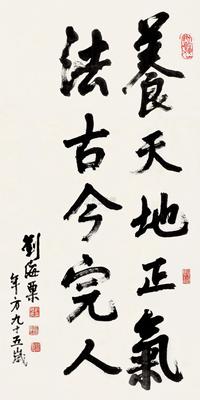 養天地正氣
法古今完人
劉海粟
年方九十五歲